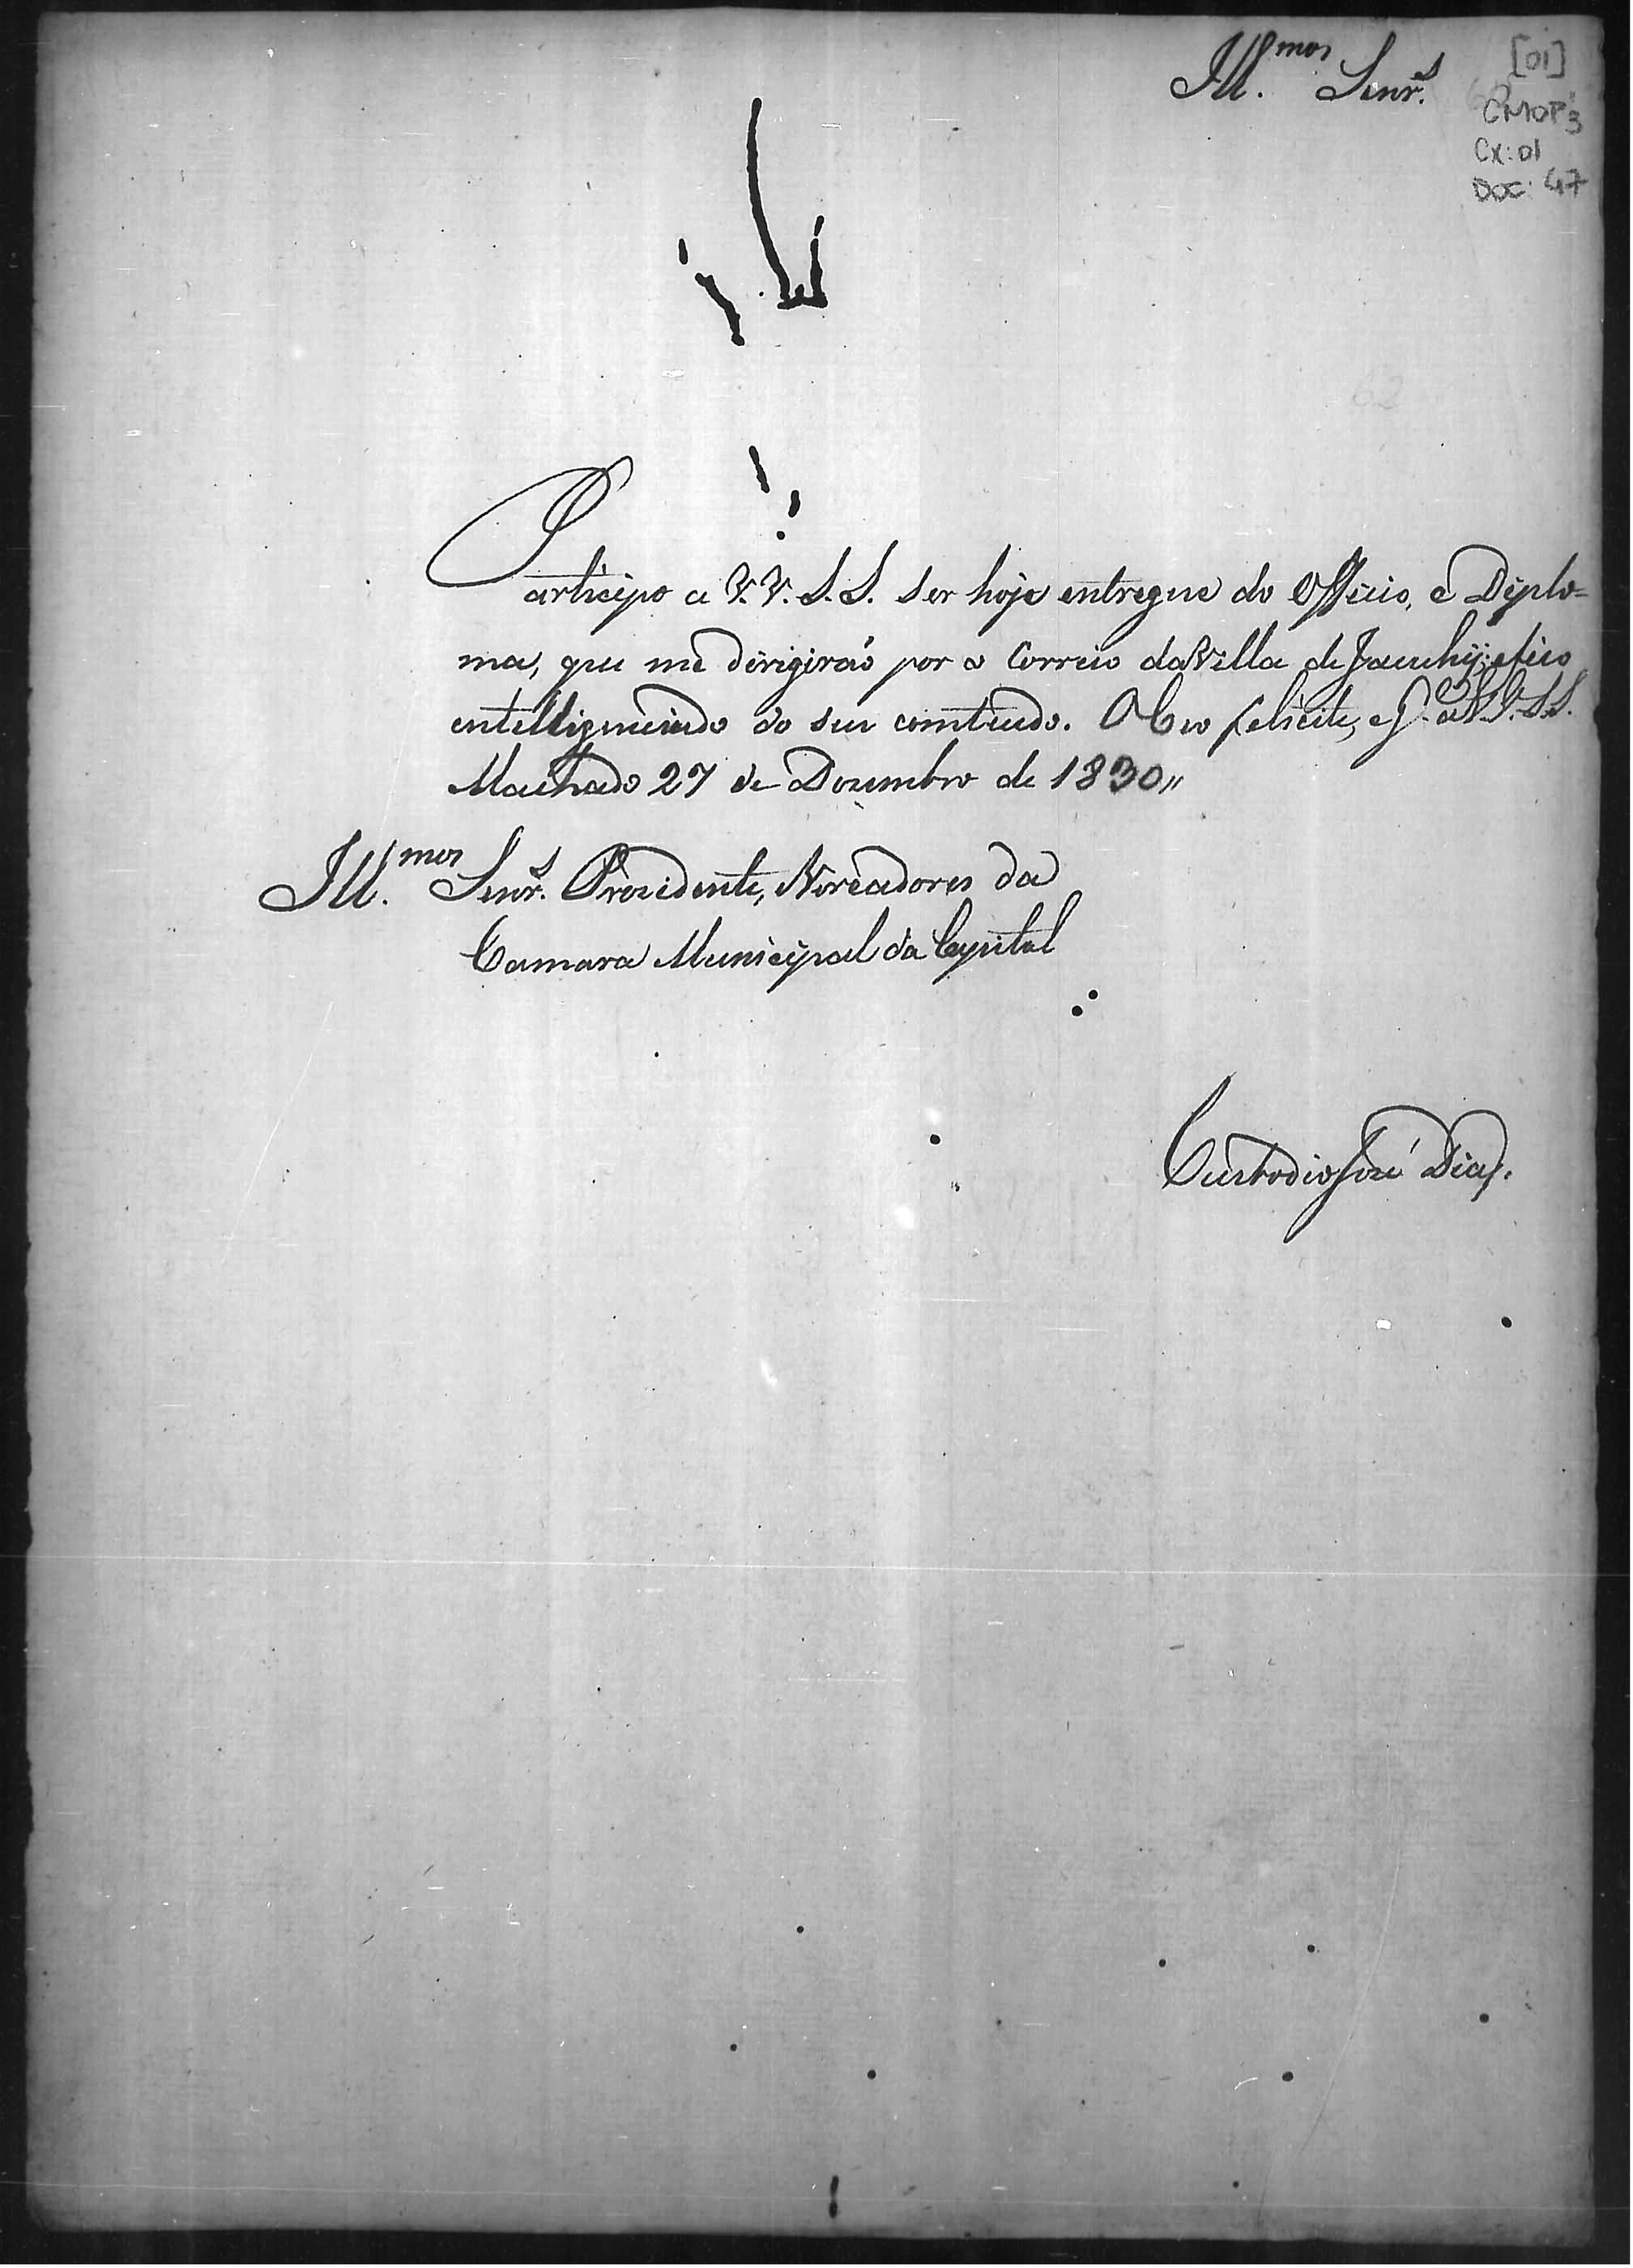 Ill.mos Senr.s
[01]
CMOP3
Cx: 01
DOC: 47
62
Participo a V.V. S.S. ser hoje entregue do Officio, e Diplo=
ma, que me dirigiráo por o Correio da Villa de Jacuhÿ; e fico
entelligenciado do seu comteudo. O Ceo felicite, e G. a V.V. S.S.
Machado 27 de Dezembro de 1830,,
Ill.mos Senr.s Prezidente, Vereadores da
Camara Municipal da Capital
Custodio José Dias.